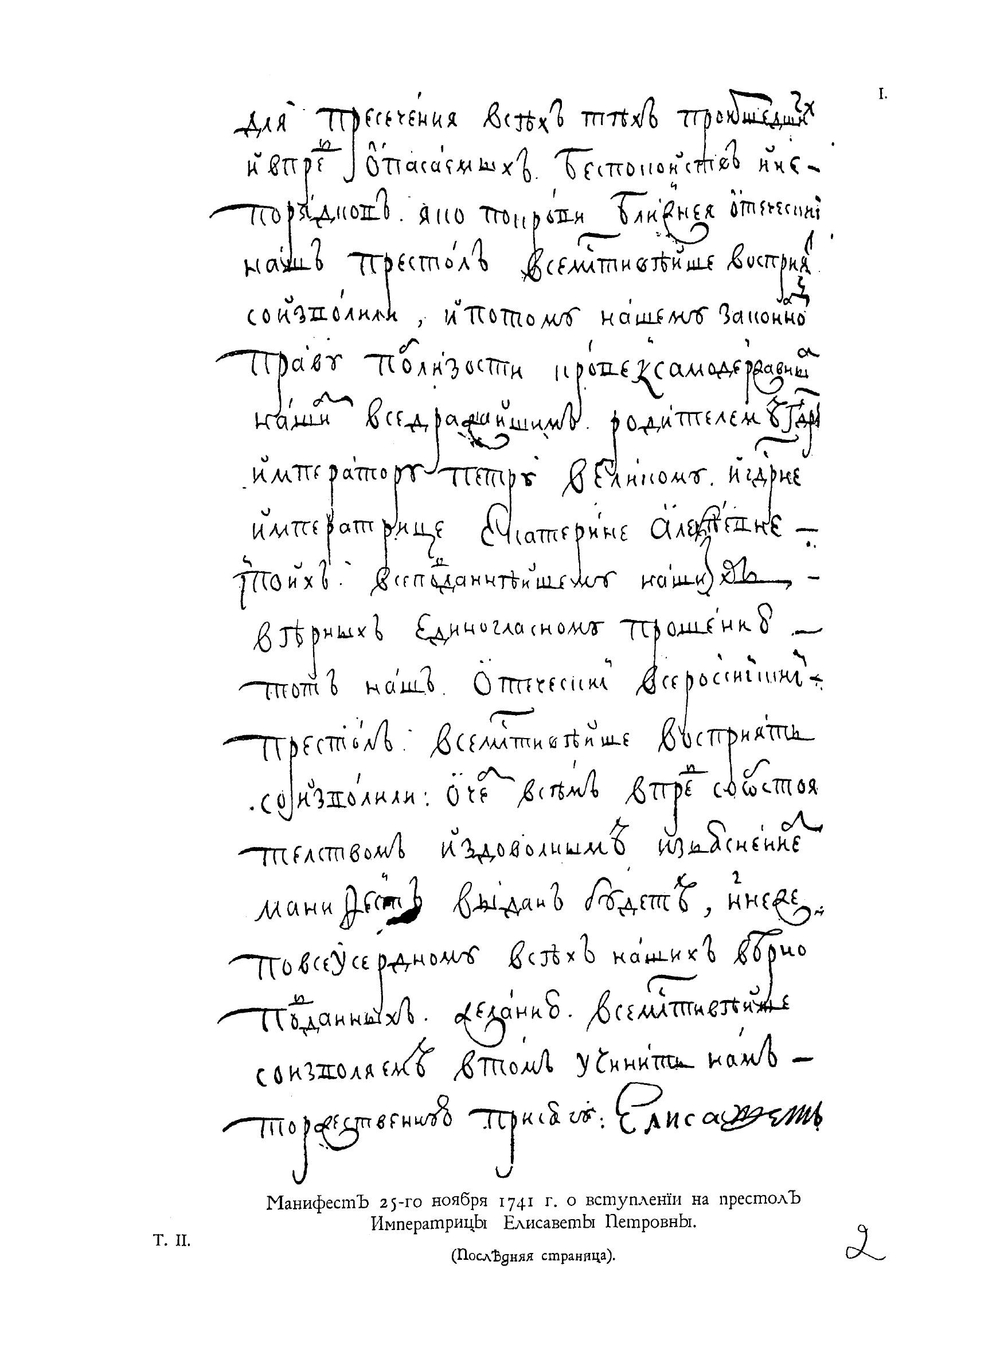 I.
для пресечения всѣхъ тѣхъ происшедшихъ
и впредь опасаемыхъ. безпокойствъ и не-
порядковъ. яко по крови ближняя отеческий
нашъ престолъ всемлтивѣйше восприять
соизволили, и по тому нашему законному
праву по близости крови къ самодержавным
нашим вседражайшимъ. родителемъ гдрю
императору петру великому. и гдрне
императрице екатерине алеѯевне —
и по ихъ: всеподданнейшему наших —
вѣрныхъ единогласному прошению —
тотъ нашъ. отеческий всероссийский
престолъ: всемлтивѣйше восприять
соизволили: о чем всѣмъ впредь со обстоя
телствомъ и з доволнымъ изъяснениемъ
манифестъ выданъ будетъ, и ннѣ
по всеусердному всѣхъ нашихъ вѣрно
подданныхъ. желанию. всемлтивѣйше
соизволяемъ в томъ учинить намъ —
торжественную присягу: Елисаветъ
Манифестъ 25-го ноября 1741 г. о вступленіи на престолъ
Императрицы Елисаветы Петровны.
(Послѣдняя страница).
Т. II.
2